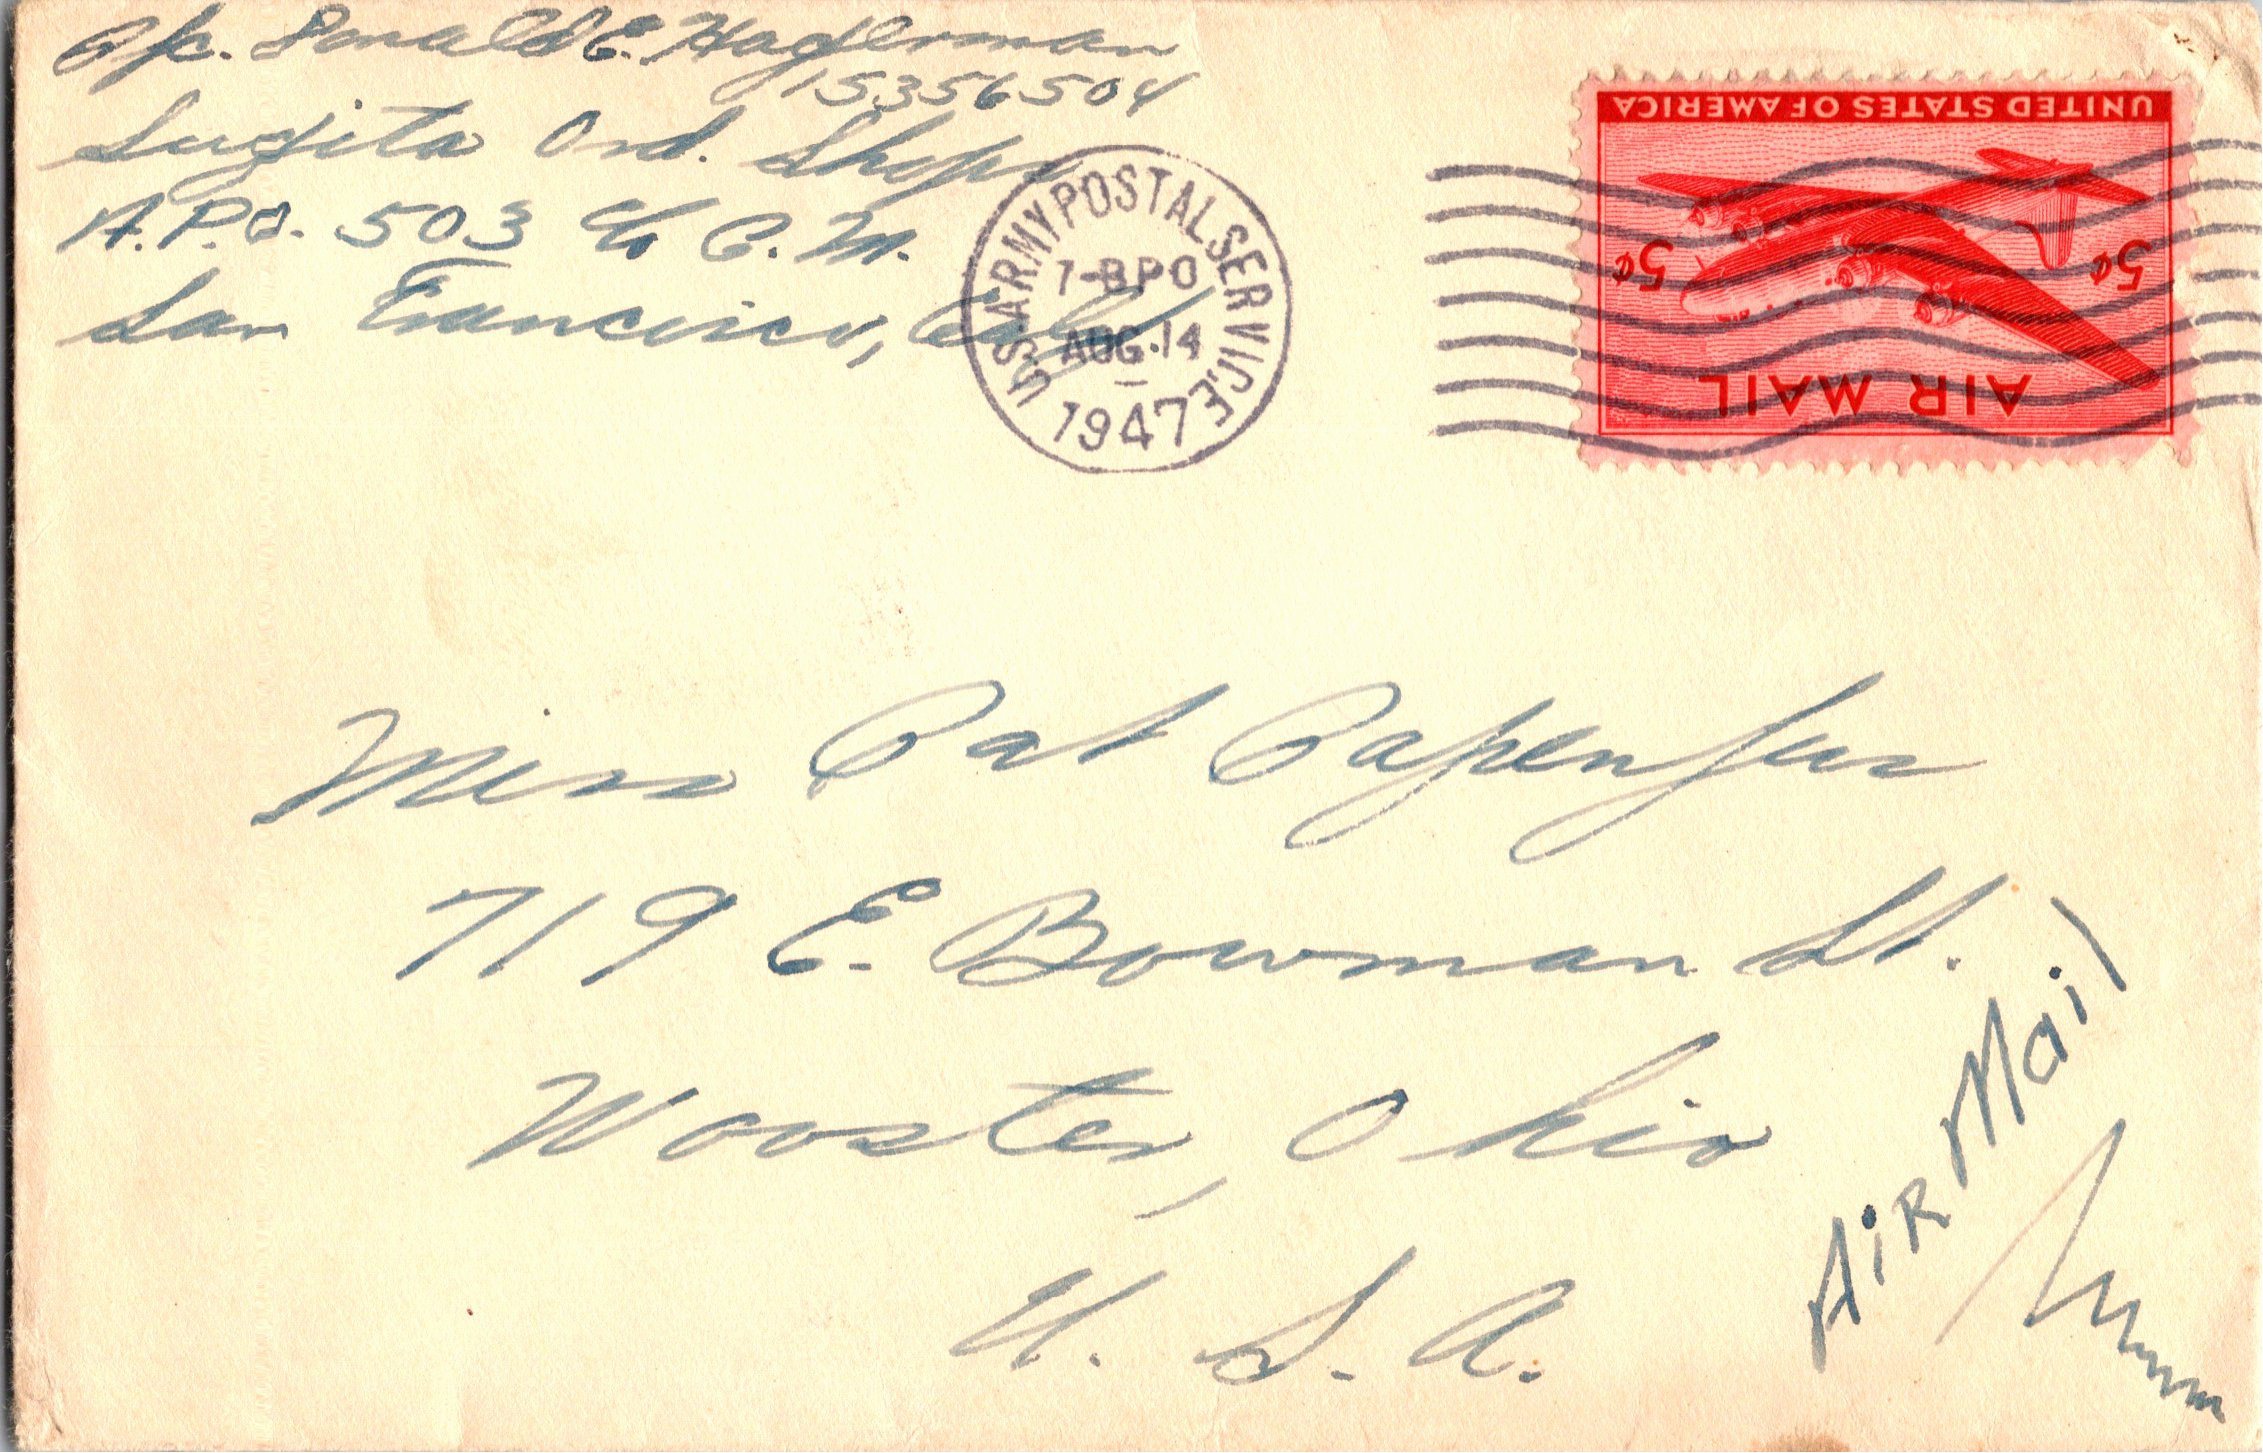 Donald E. Hagerman
15356504
Sugita Ord. Shops
A.P.O. 503 c/o P.M.
San Francisco, Calif
U.S. ARMY POSTAL SERVICE
7-BPO
AUG 14
1947
UNITED STATES OF AMERICA
5¢ 5¢
AIR MAIL
Miss Pat Papenfus
719 E. Bowman St.
Wooster, Ohio
U. S. A.
AiR Mail